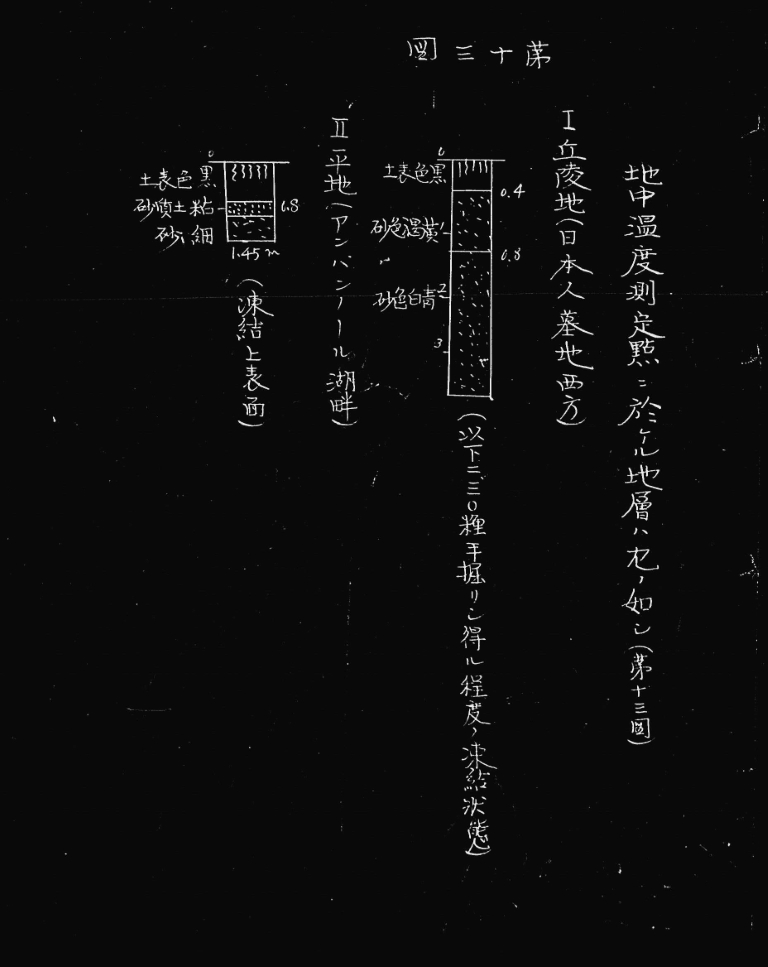 第十三圖
地中温度測定點ニ於ケル地層ハ左ノ如シ(第十三圖)
I 丘陵地(日本人墓地西方)
0
黒色表土
0.4
黄褐色砂
1
0.8
青白色砂
2
3
(以下二、三〇糎手掘リシ得ル程度ノ凍結状態)
II 平地(アンバンノール湖畔)
0
黒色表土
粘土質砂
0.8
細イ砂
1.45m
(凍結上表面)